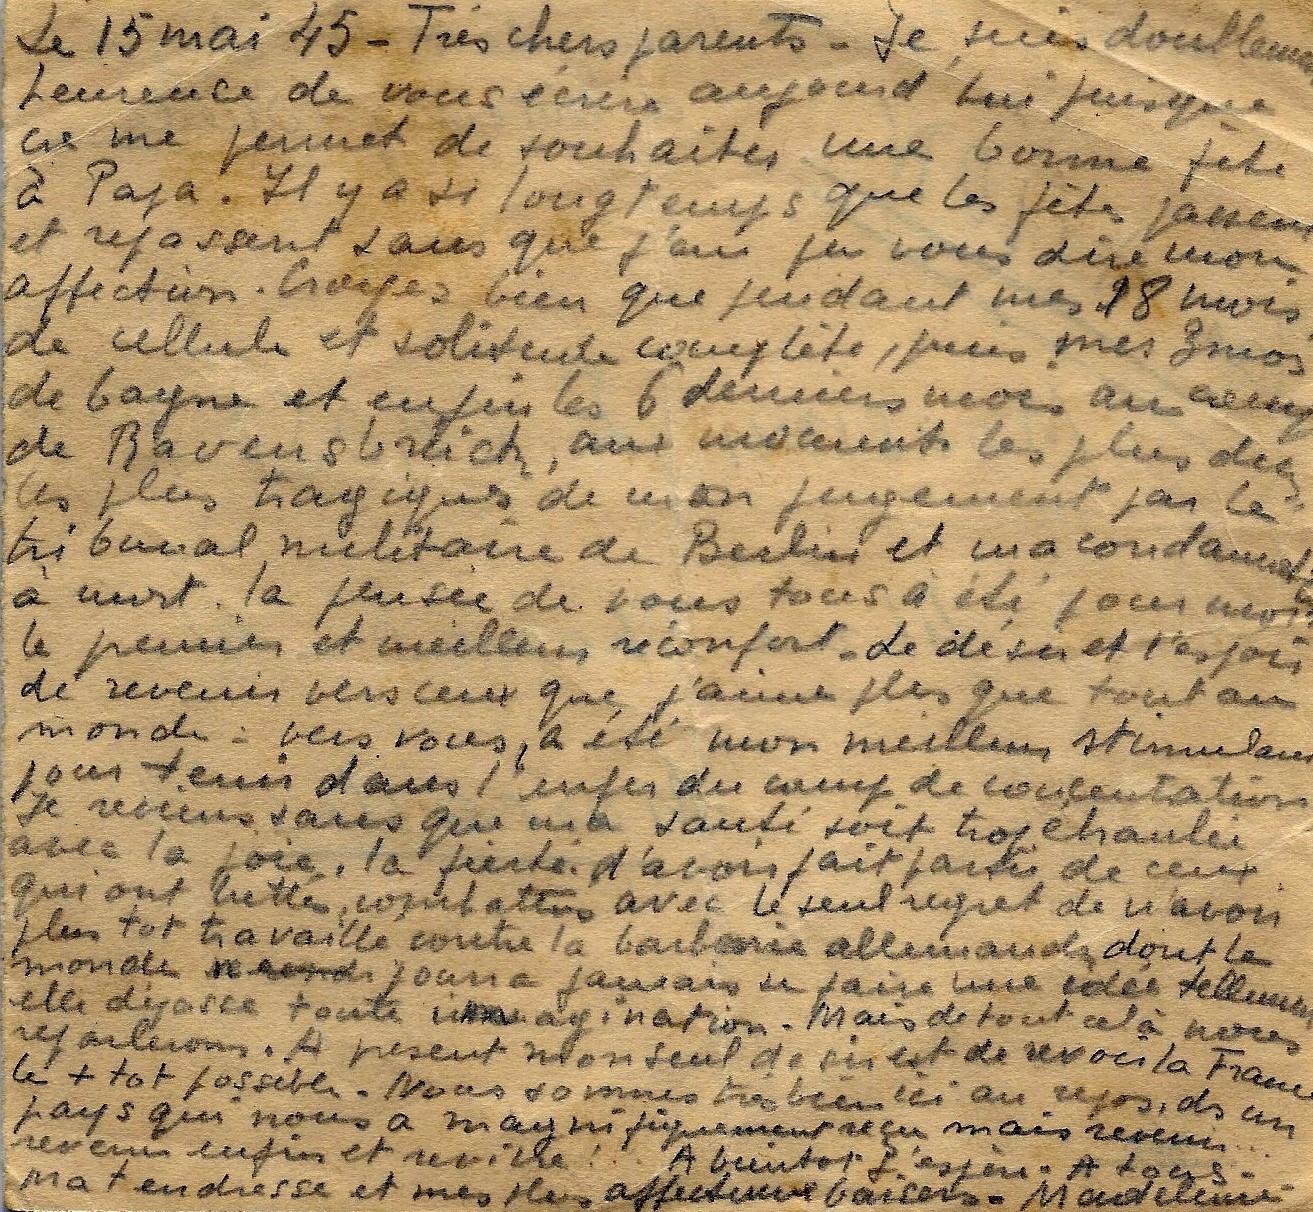 Le 15 mai 45 - Très chers parents - Je suis doublement
heureuse de vous écrire aujourd'hui puisque
ce me permet de souhaiter une bonne fête
à Papa. Il y a si longtemps que les fêtes passent
et repassent sans que j'aie pu vous dire mon
affection. Croyez bien que pendant mes 18 mois
de cellule et solitude complète, puis mes 3 mois
de bagne et enfin les 6 derniers mois au camp
de Ravensbrück, aux moments les plus durs
les plus tragiques de mon jugement par le
tribunal militaire de Berlin et ma condamnat
à mort. la pensée de vous tous a été pour moi
le premier et meilleur réconfort. Le désir et l'espoir
de revenir vers ceux que j'aime plus que tout au
monde : vers vous, a été mon meilleur stimulant
pour tenir dans l'enfer du camp de concentration
Je reviens sans que ma santé soit trop ébranlée
avec la joie, la fierté d'avoir fait partie de ceux
qui ont luttés, combattus avec le seul regret de n'avoir
plus tot travaillé contre la barbarie allemande dont le
monde pourra jamais se faire une idée tellement
elle dépasse toute imagination. Mais de tout cela nous
reparlerons. A present mon seul desir est de revoir la France
le + tot possible. Nous sommes très bien ici au repos, ds un
pays qui nous a magnifiquement reçu mais revenir...
revenir enfin et revivre ! A bientot j'espère. A tous -
ma tendresse et mes plus affectueux baisers - Madeleine